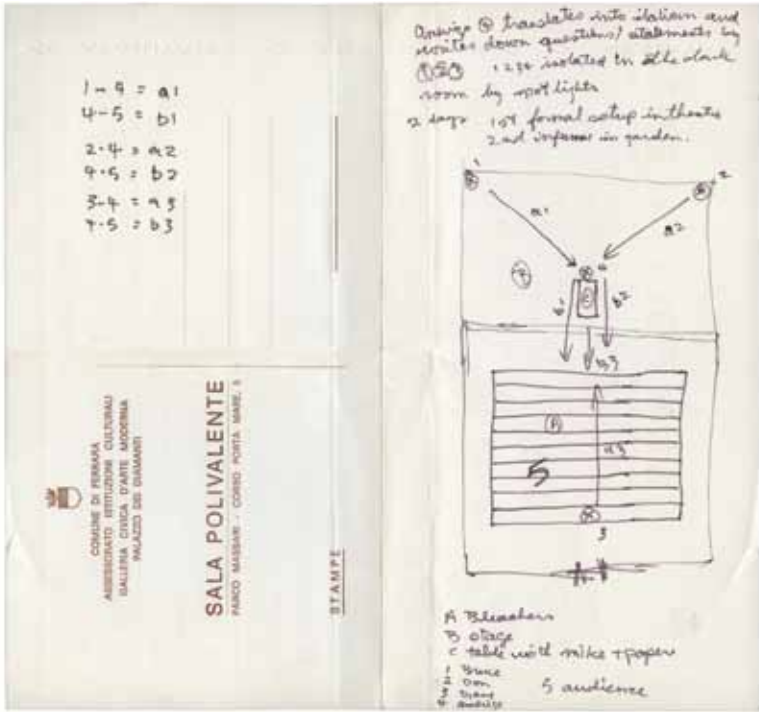 1-4 = a1
4-5 = b1
2-4 = a2
4-5 = b2
3-4 = a3
4-5 = b3
COMUNE DI FERRARA
ASSESSORATO ISTITUZIONI CULTURALI
GALLERIA CIVICA D'ARTE MODERNA
PALAZZO DEI DIAMANTI
SALA POLIVALENTE
PARCO MASSARI - CORSO PORTA MARE, 5
STAMPE
translates into italian and
writes down questions/statements by
isolated in the dark
room by spot lights
2 days 1st formal setup in theatre
2nd informal in garden.
1
2
a1
a2
4
B
C
b1
b2
b3
A
a3
5
3
A Bleachers
B stage
C table with mike + paper
1 Bruce
2 Don
3
4
5 audience